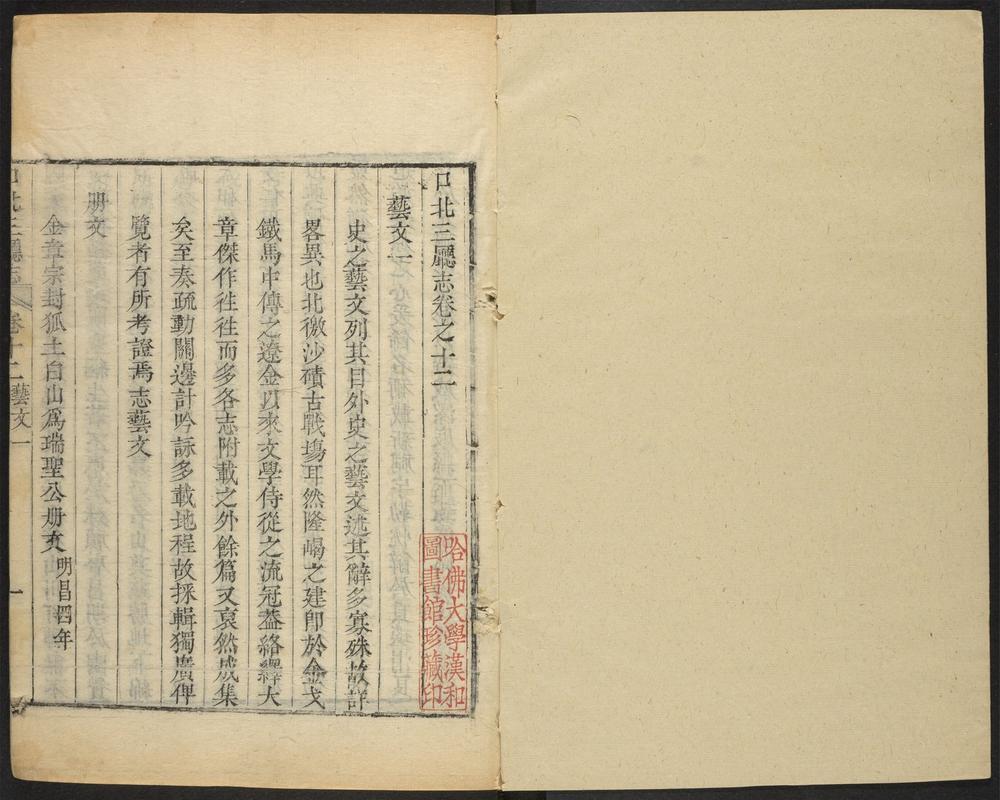 口北三廳志卷之十二
藝文一
史之藝文列其目外史之藝文述其辭多寡殊故詳
畧異也北徼沙磧古戰塲耳然隆碣之建卽於金戈
鐵馬中傳之遼金以來文學侍從之流冠葢絡繹大
章傑作徃徃而多各志附載之外餘篇又裒然成集
矣至奏疏動關邊計吟詠多載地程故採輯獨廣俾
覽者有所考證焉志藝文
册文
金章宗封狐土白山爲瑞聖公册文明昌四年
口北三廳志 卷十二 藝文一 一
哈佛大學漢和
圖書館珍藏印